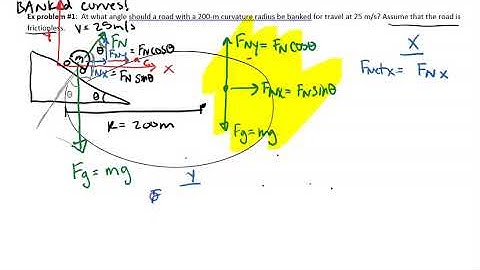 BANKED curves!
Ex problem #1: At what angle should a road with a 200-m curvature radius be banked for travel at 25 m/s? Assume that the road is
frictionless.
V = 25m/s
FN
θ
FNY = FN cosθ
m
X
FNX = FN sinθ
θ
θ
R = 200m
Fg = mg
FNY = FN cosθ
FNX = FN sinθ
Fg = mg
X
Fnetx = FNX
Y
F